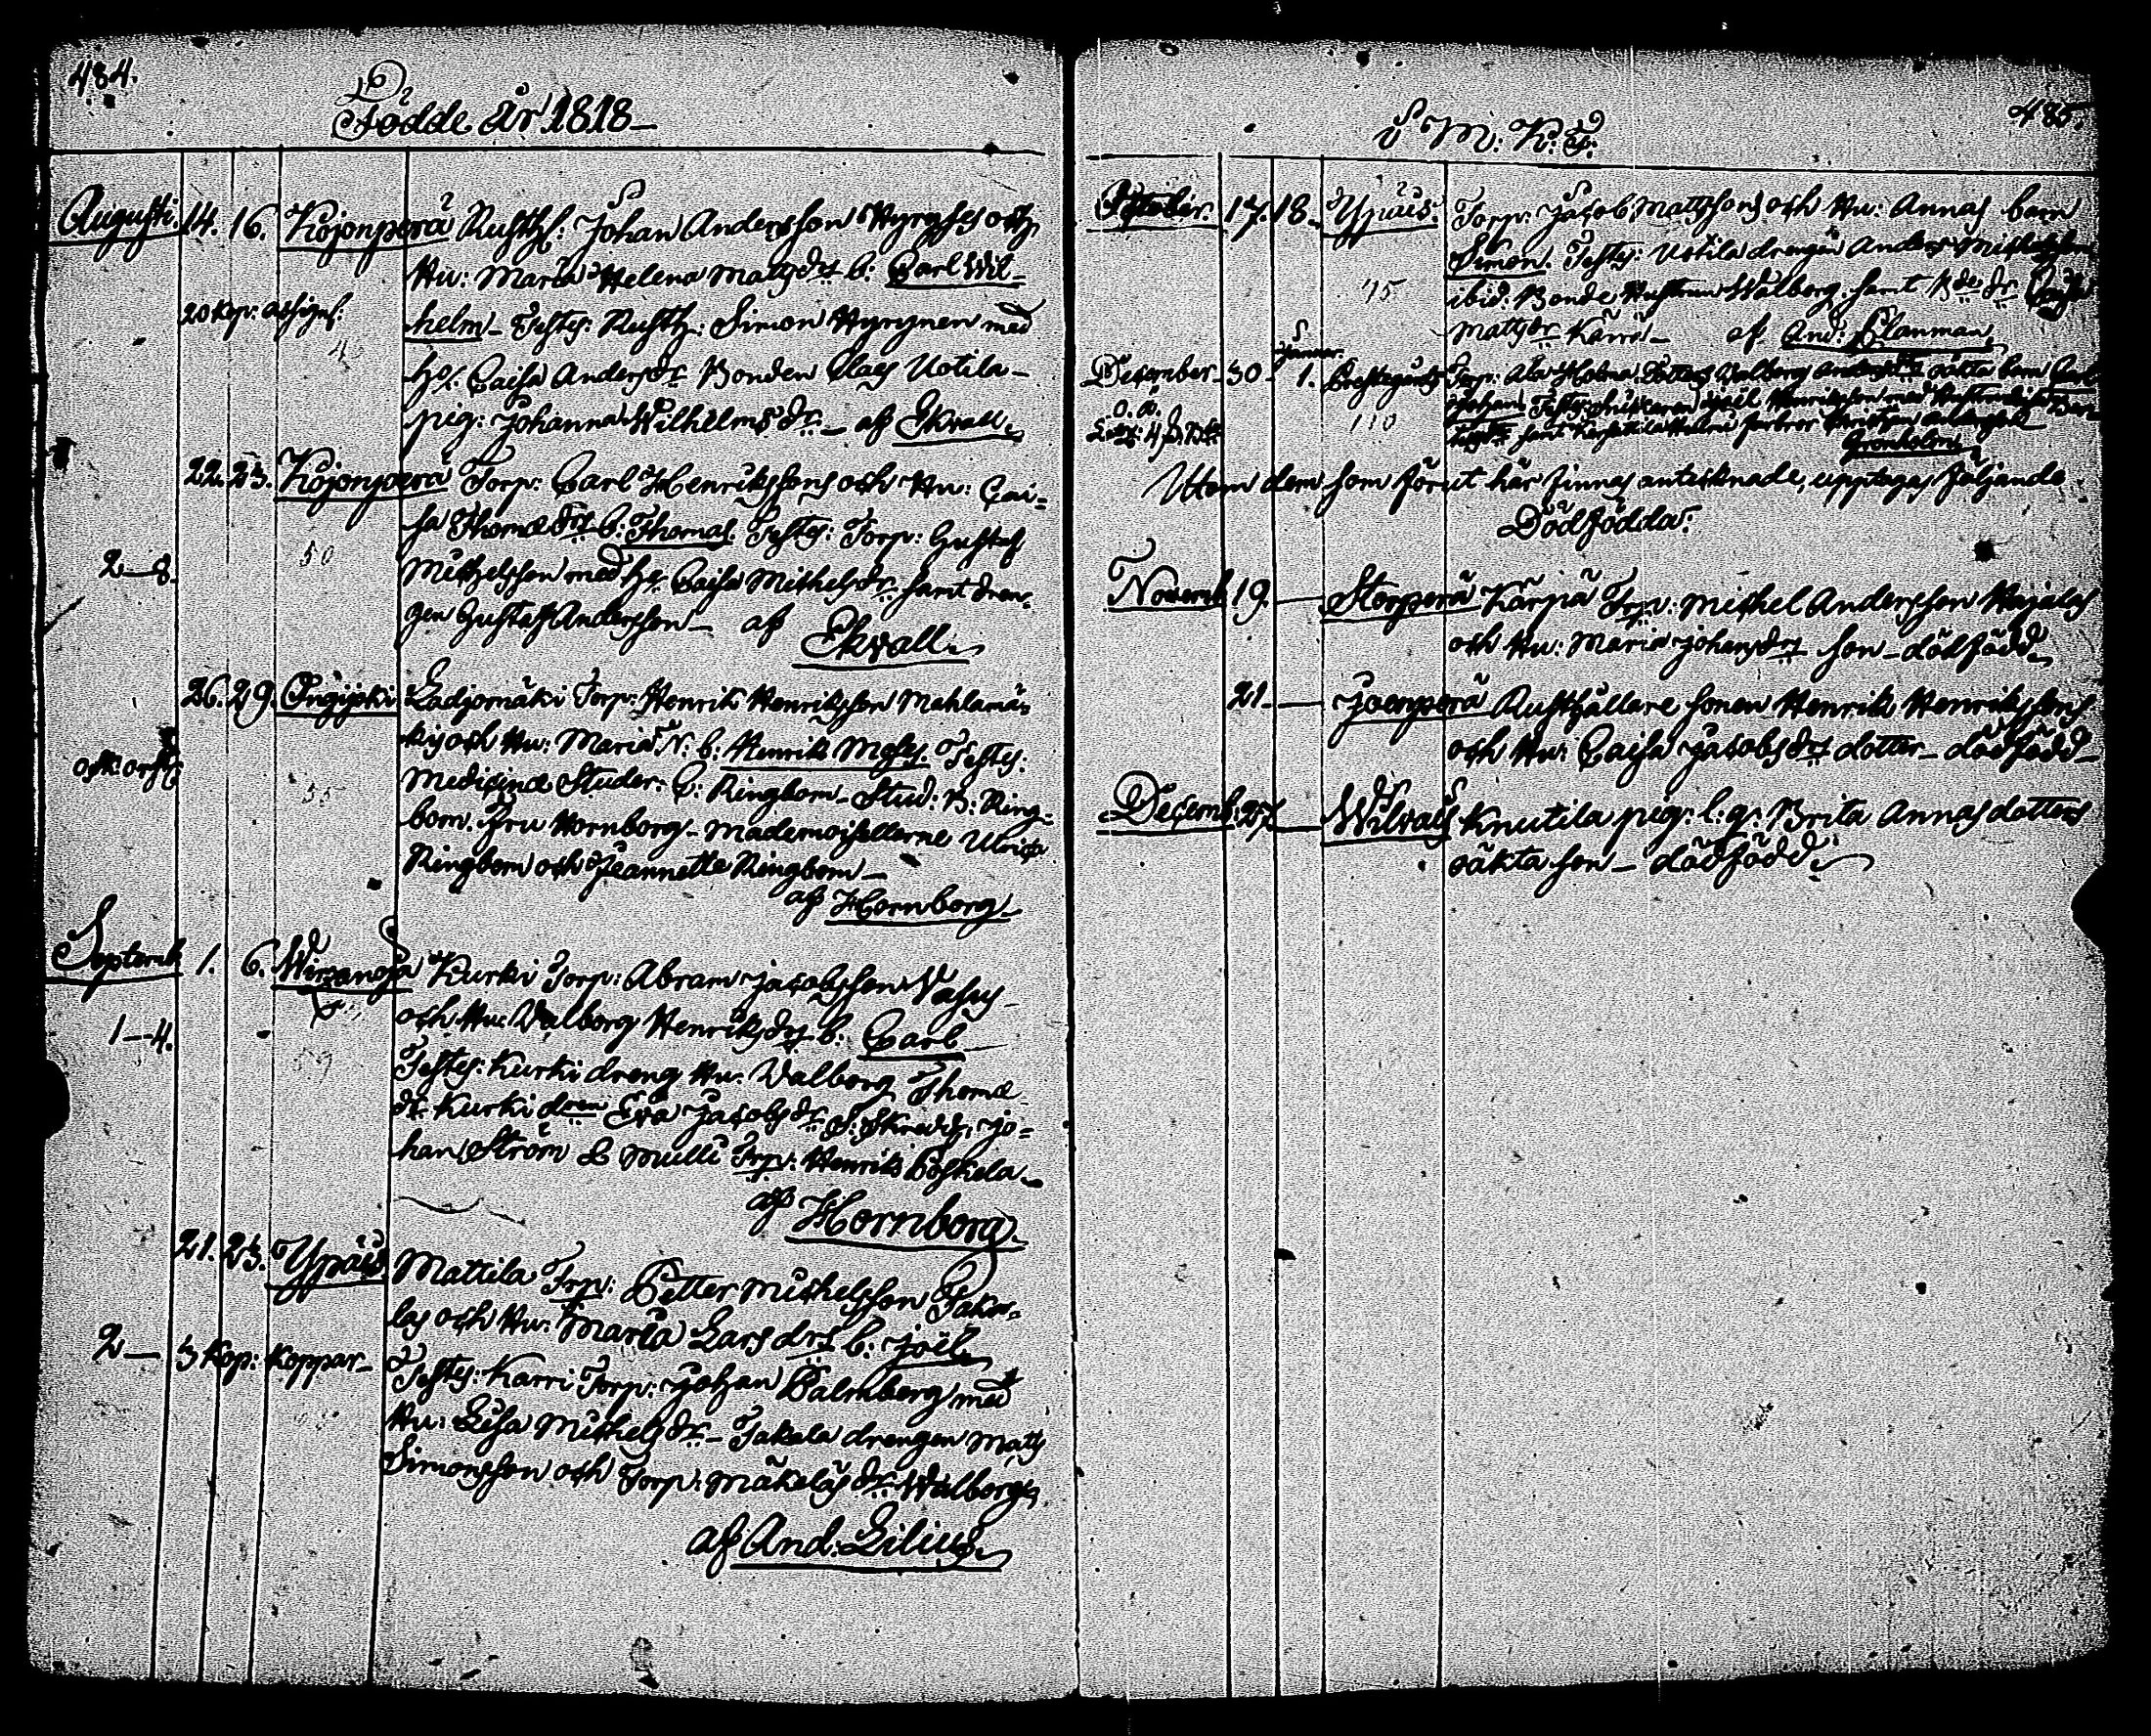 484.
Födde år 1818
Augusti. 14. 16. Kojonperä Rusth: Johan Andersson Hyryses och
Hu: Maria Helena Matsdrs b: Carl Wil-
20 kop: assign:
helm. Testes: Rusth: Simon Hyrynen med
hs. Caisa Andersdr Bonden Claes Uotila
pig: Johanna Wilhelmsdr. af Ekvall.
22. 23. Kojonperä Torp: Carl Henrikssons och Hu: Cai-
sa Thomædrs b: Thomas. Testes: Torp: Gustaf
50
2—8.
Michelsson med hs Caisa Michelsdr samt dren-
gen Gustaf Andersson af Ekvall.
26. 29. Orijpää Ladjomäki Torp: Henrik Henriksson Mahlamä-
kis och Hu: Maria N. b: Henrik Moses. Testes:
55
Medicinæ Studer: C: Ringbom Stud: B: Ring-
bom. Fru Hornborg. Mademoisellerne Ulrica
Ringbom och Jeannette Ringbom
af Hornborg
Septemb. 1. 6. Wirzanoja Kurki Torp: Abram Jacobsson Vasus
och Hu: Valborg Henriksdrs b: Carl
1—4.
59
Testes: Kurki dreng Hu: Valborg Thomæ
dr. Kurki Eva Jacobsdr. S: Skredd: Jo-
han Ström & Mulli Trp: Henrik Poskela
af Hornborg.
21. 23. Ypäis Mattila Trp: Petter Michelsson Taka-
las och Hu: Maria Lars drs b: Joël
2— 3 Kop: Koppar
Testes: Karri Torp: Johan Palmberg med
Hu: Lisa Michelsdr Takala drengen Matts
Simonsson och Torp: Mäkeläs dr: Walborg
af And: Lilius.
485.
S M: K: F:
October. 17. 18. Ypäis. Torp: Jacob Mattssons och Hu: Annas barn
Simon. Testes: Uotila drengen Anders Michelsson
75
ibid: Bonde Hustrun Walborg samt Bde dr
Mattsdr Karri af And: Blanman
December 30 Januar. 1. Prestegårds Torp: Ala Holma Dotters Walborg oäkta barn Carl
Johan Testes:
110
Grönholm
Utom dem som förut här finnas antecknade, upptagas följande
Dödfödda:
Novemb. 19. Storperä Karpa Trp: Michel Andersson Hujalas
och Hu: Maria Johansdrs son dödfödd
21. Joenperä Rusthållare sonen Henrik Henrikssons
och Hu: Caisa Jacobsdrs dotter dödfödd
Decemb. 27. Wilvais Knutila pig: l:g: Brita Annasdotters
oäkta son dödfödd.